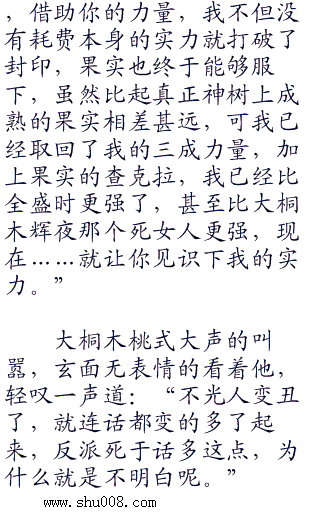 ，借助你的力量，我不但没
有耗费本身的实力就打破了
封印，果实也终于能够服
下，虽然比起真正神树上成
熟的果实相差甚远，可我已
经取回了我的三成力量，加
上果实的查克拉，我已经比
全盛时更强了，甚至比大桐
木辉夜那个死女人更强，现
在……就让你见识下我的实
力。”
大桐木桃式大声的叫
嚣，玄面无表情的看着他，
轻叹一声道：“不光人变丑
了，就连话都变的多了起
来，反派死于话多这点，为
什么就是不明白呢。”
www.shu008.com